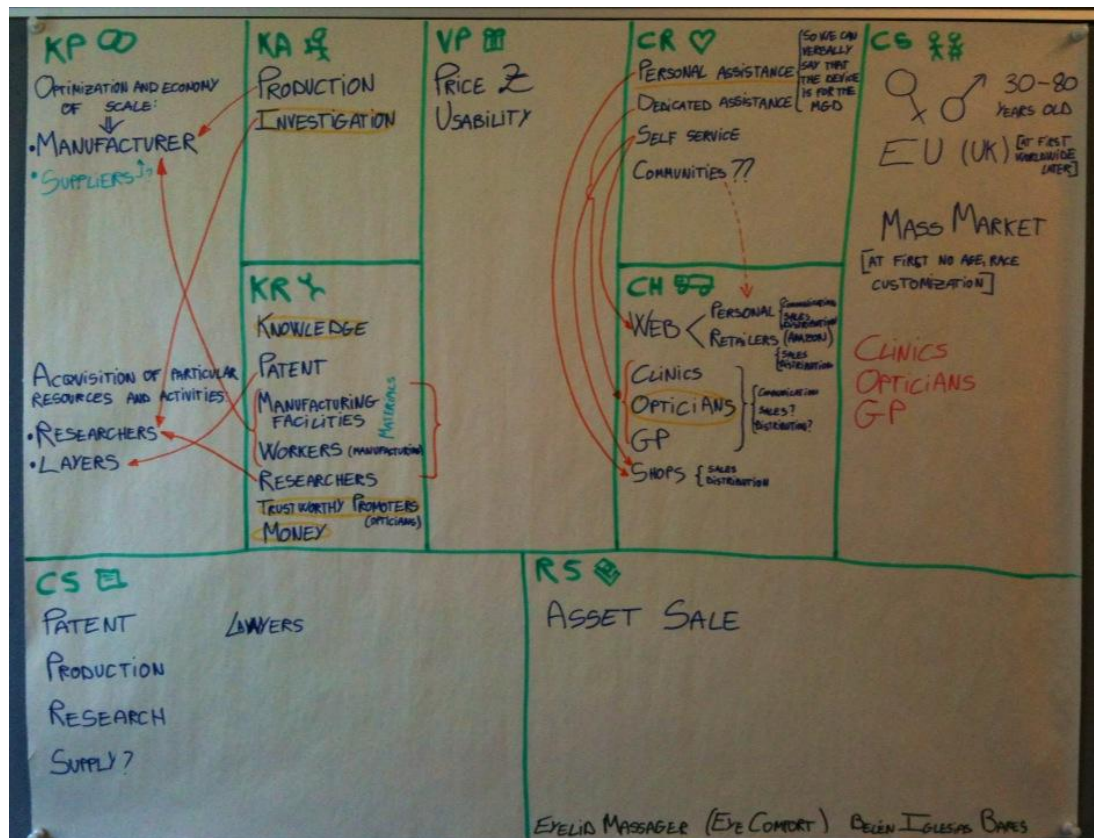 KP
OPTIMIZATION AND ECONOMY
OF SCALE:
• MANUFACTURER
• SUPPLIERS
ACQUISITION OF PARTICULAR
RESOURCES AND ACTIVITIES
• RESEARCHERS
• LAYERS
KA
PRODUCTION
INVESTIGATION
KR
KNOWLEDGE
PATENT
MANUFACTURING
FACILITIES
MATERIALS
WORKERS (MANUFACTURING)
RESEARCHERS
TRUSTWORTHY PROMOTERS
(OPTICIANS)
MONEY
VP
PRICE
USABILITY
CR
PERSONAL ASSISTANCE
DEDICATED ASSISTANCE
SO WE CAN
VERBALLY
SAY THAT
THE DEVICE
IS FOR THE
MGD
SELF SERVICE
COMMUNITIES ??
CH
WEB
PERSONAL
COMMUNICATION
SALES
DISTRIBUTION
RETAILERS (AMAZON)
SALES
DISTRIBUTION
CLINICS
OPTICIANS
GP
COMMUNICATION
SALES?
DISTRIBUTION?
SHOPS
SALES
DISTRIBUTION
CS
30-80
YEARS OLD
EU (UK) [AT FIRST
WORLDWIDE
LATER]
MASS MARKET
[AT FIRST NO AGE, RACE
CUSTOMIZATION]
CLINICS
OPTICIANS
GP
CS
PATENT LAWYERS
PRODUCTION
RESEARCH
SUPPLY?
RS
ASSET SALE
EYELID MASSAGER (EYE COMFORT) BELÉN IGLESIAS